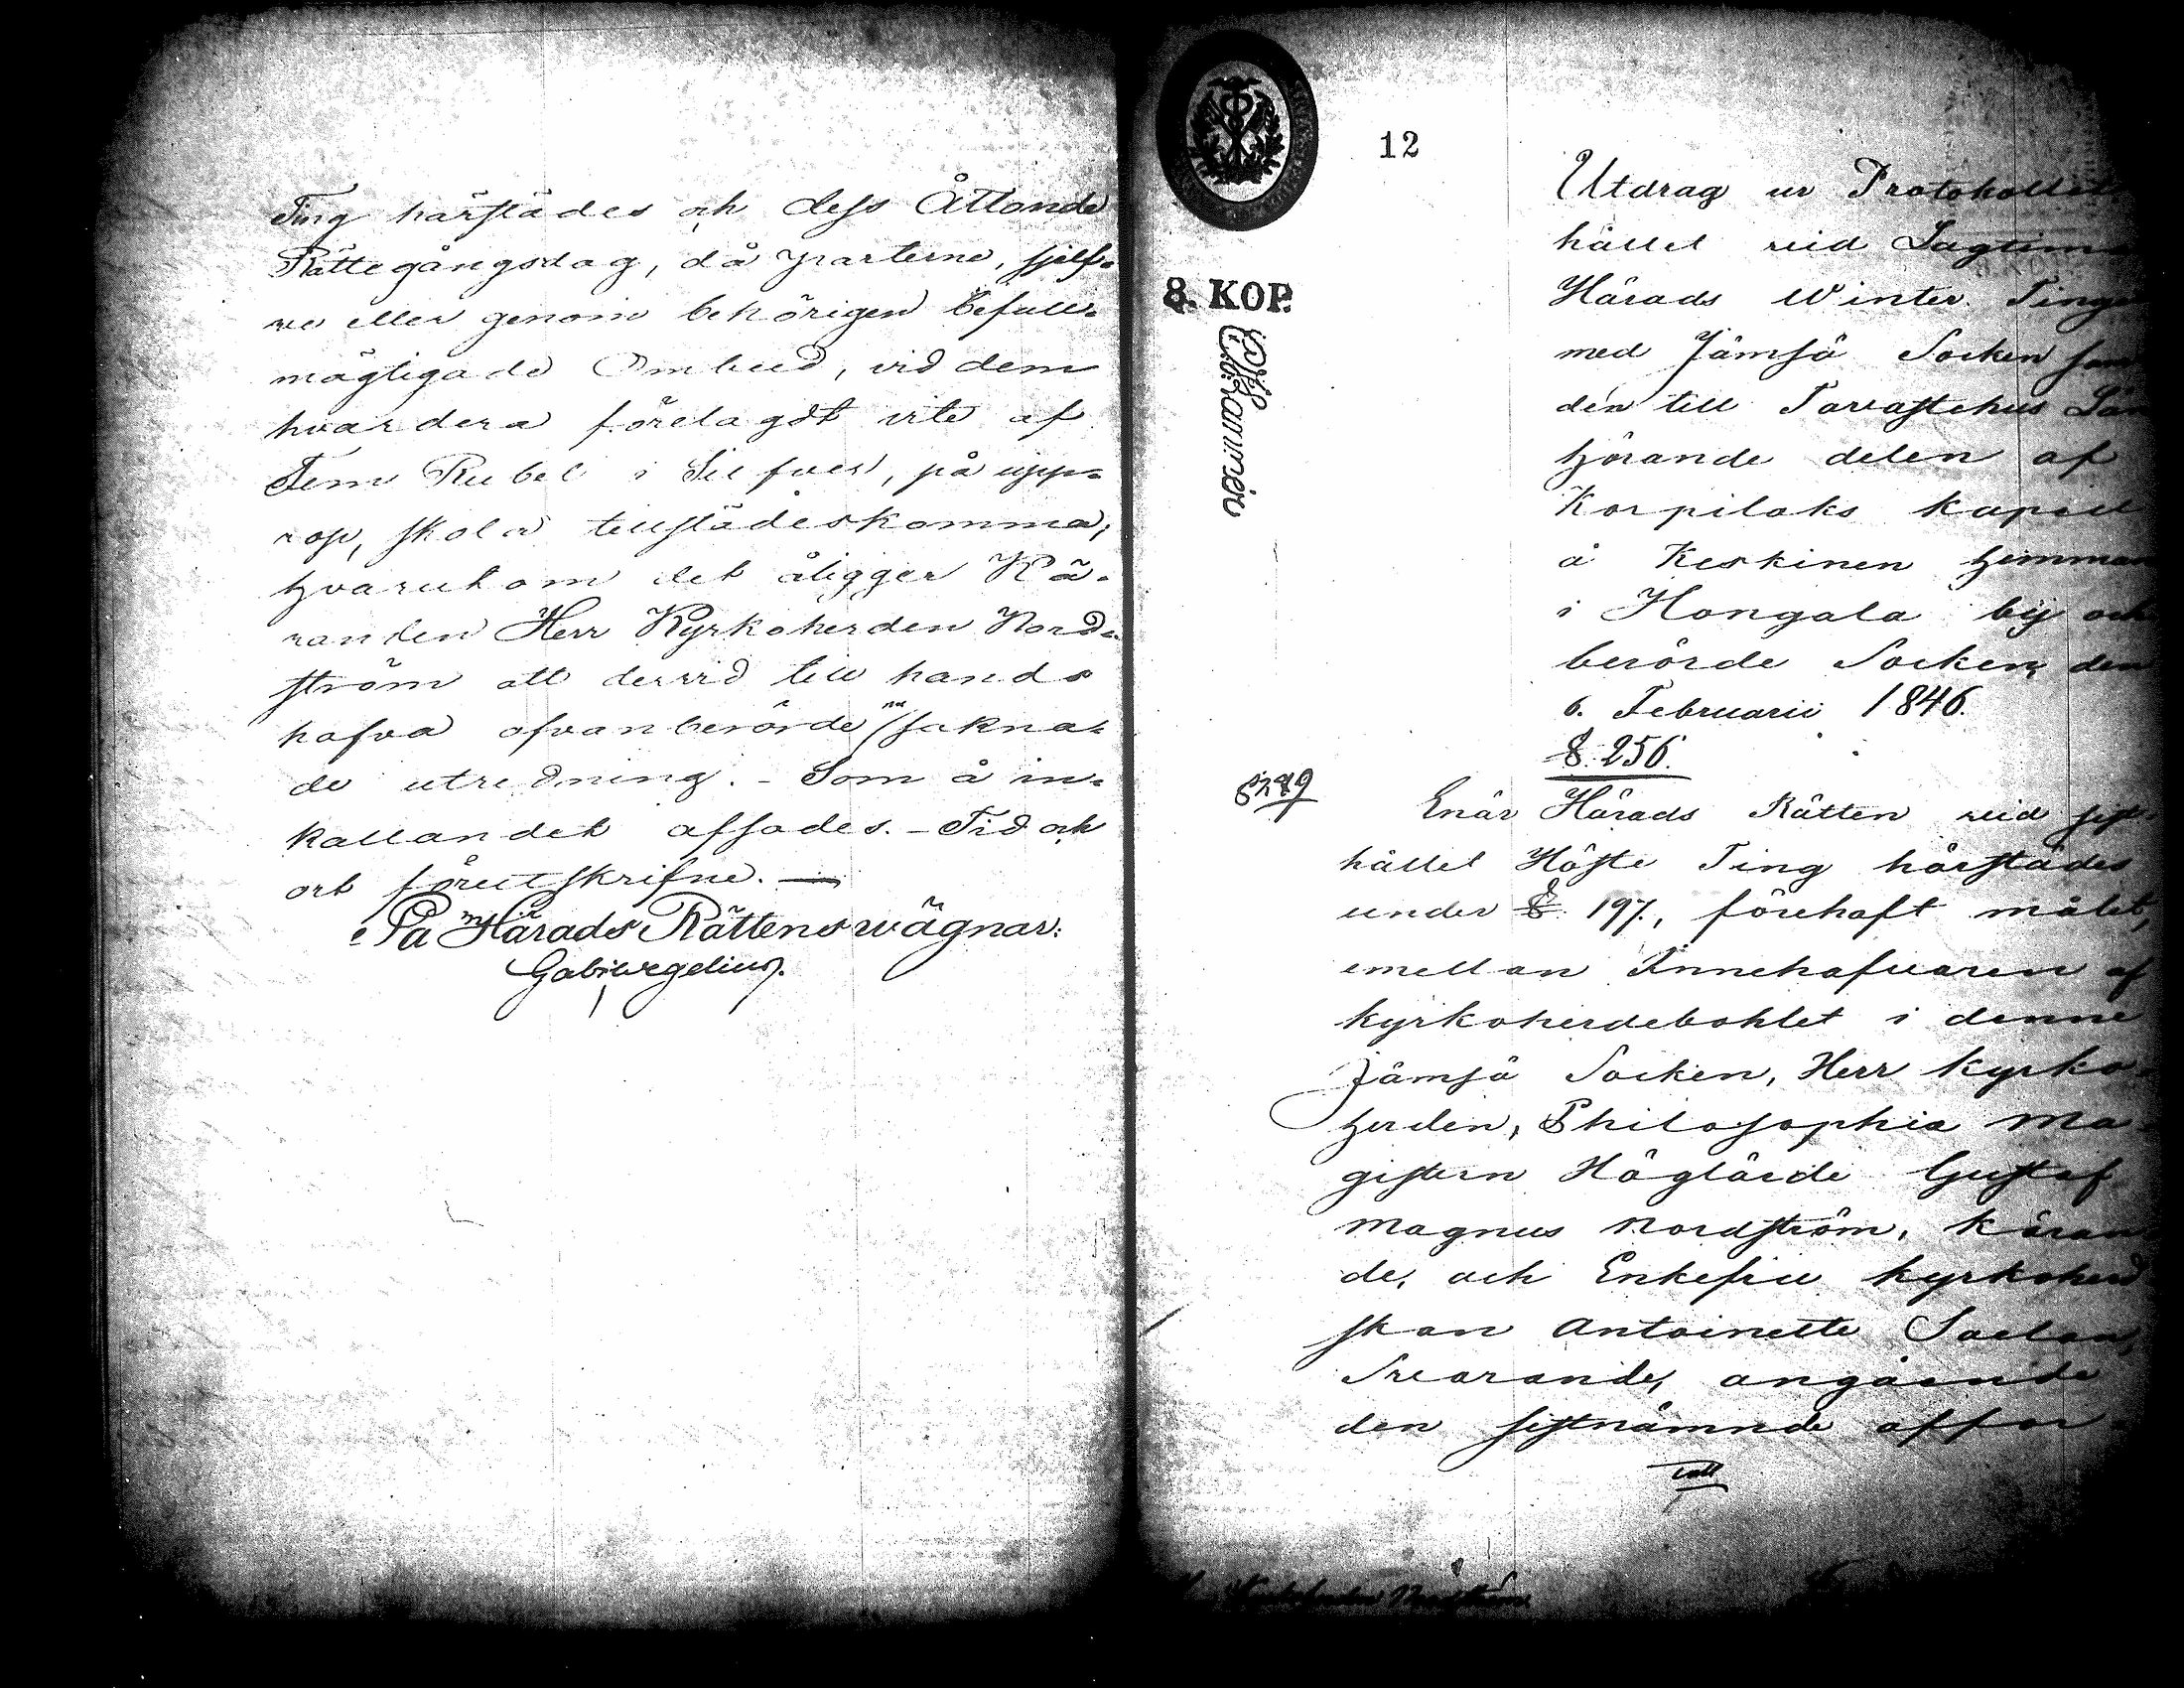 Ting härstädes och dess Åttonde
Rättegångsdag, då parterne, sjelf-
ve eller genom behörigen befull-
mägtigade Ombud, vid dem
hvardera förelagdt vite af
Fem Rubel i Silfver, på upp-
rop, skola tillstädeskomma,
hvarutom det åligger Kä-
randen Herr Kyrkoherden Nord-
ström att dervid till hands
hafva ofvanberörde nu sakna-
de utredning. - Som å in-
kallandet afsades. - Tid och
ort förutskrifne. —
På Härads Rättens wägnar:
12
8. KOP.
Utdrag ur Protokollet
hållet vid
Härads Winter Tinge
med Jämsä Socken sam
den till Tavastehus Län
hörande delen af
Korpilaks Kapell
å Keskinen Hemman
i Hongala by och
berörde Socken, den
6. Februarii 1846.
§. 256.
Enär Härads Rätten vid sist-
hållet Höste Ting härstädes
under §. 197., förehaft målet,
emellan Innehafvaren af
Kyrkoherdebohlet i denne
Jämsä Socken, Herr Kyrko-
herden, Philosophiæ Ma-
gistern Höglärde Gustaf
Magnus Nordström, Käran
de, och Enkefru Kyrkoherd
skan Antoinette
Svarande, angående
den sistnämnde affor-